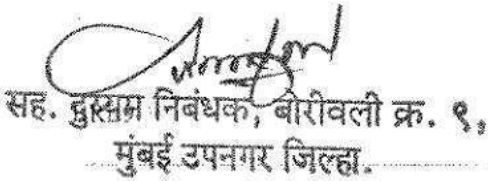 सह. दुय्यम निबंधक, बोरीवली क्र. ९,
मुंबई उपनगर जिल्हा.